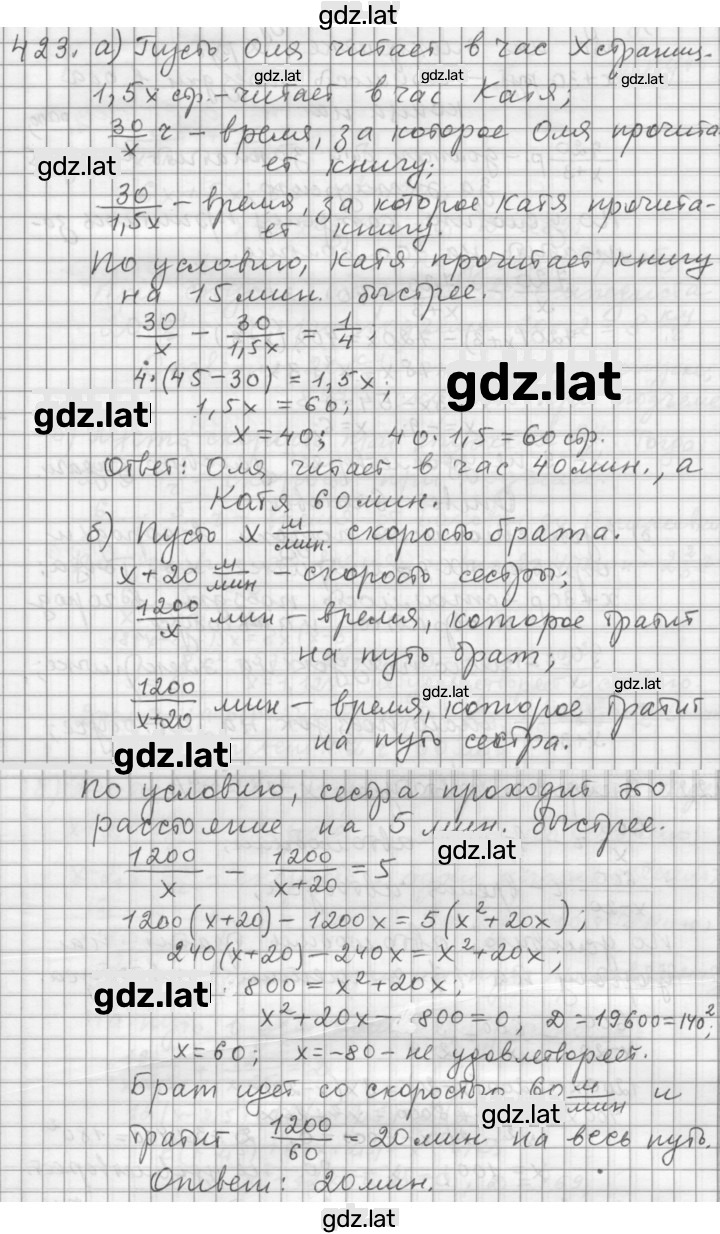 gdz.lat
423. а) Пусть Оля читает в час x страниц.
gdz.lat gdz.lat gdz.lat
1,5x стр. - читает в час Катя;
30/x ч - время, за которое Оля прочита-
gdz.lat
ет книгу;
30/1,5x - время, за которое Катя прочита-
ет книгу.
По условию, Катя прочитает книгу
на 15 мин. быстрее.
30/x - 30/1,5x = 1/4;
gdz.lat
4·(45-30) = 1,5x;
gdz.lat
1,5x = 60;
x = 40; 40·1,5 = 60 стр.
Ответ: Оля читает в час 40 мин., а
Катя 60 мин.
б) Пусть x м/мин. скорость брата.
x+20 м/мин - скорость сестры;
1200/x мин - время, которое тратит
на путь брат;
gdz.lat gdz.lat
1200/x+20 мин - время, которое тратит
на путь сестра.
gdz.lat
По условию, сестра проходит это
расстояние на 5 мин. быстрее.
gdz.lat
1200/x - 1200/x+20 = 5
1200(x+20) - 1200x = 5(x²+20x);
240(x+20) - 240x = x²+20x;
gdz.lat
800 = x²+20x;
x²+20x- 800 = 0; D = 19600 = 140²;
x = 60; x = -80 - не удовлетворяет.
Брат идет со скоростью 60 м/мин и
gdz.lat
тратит 1200/60 = 20 мин на весь путь.
Ответ: 20 мин.
gdz.lat